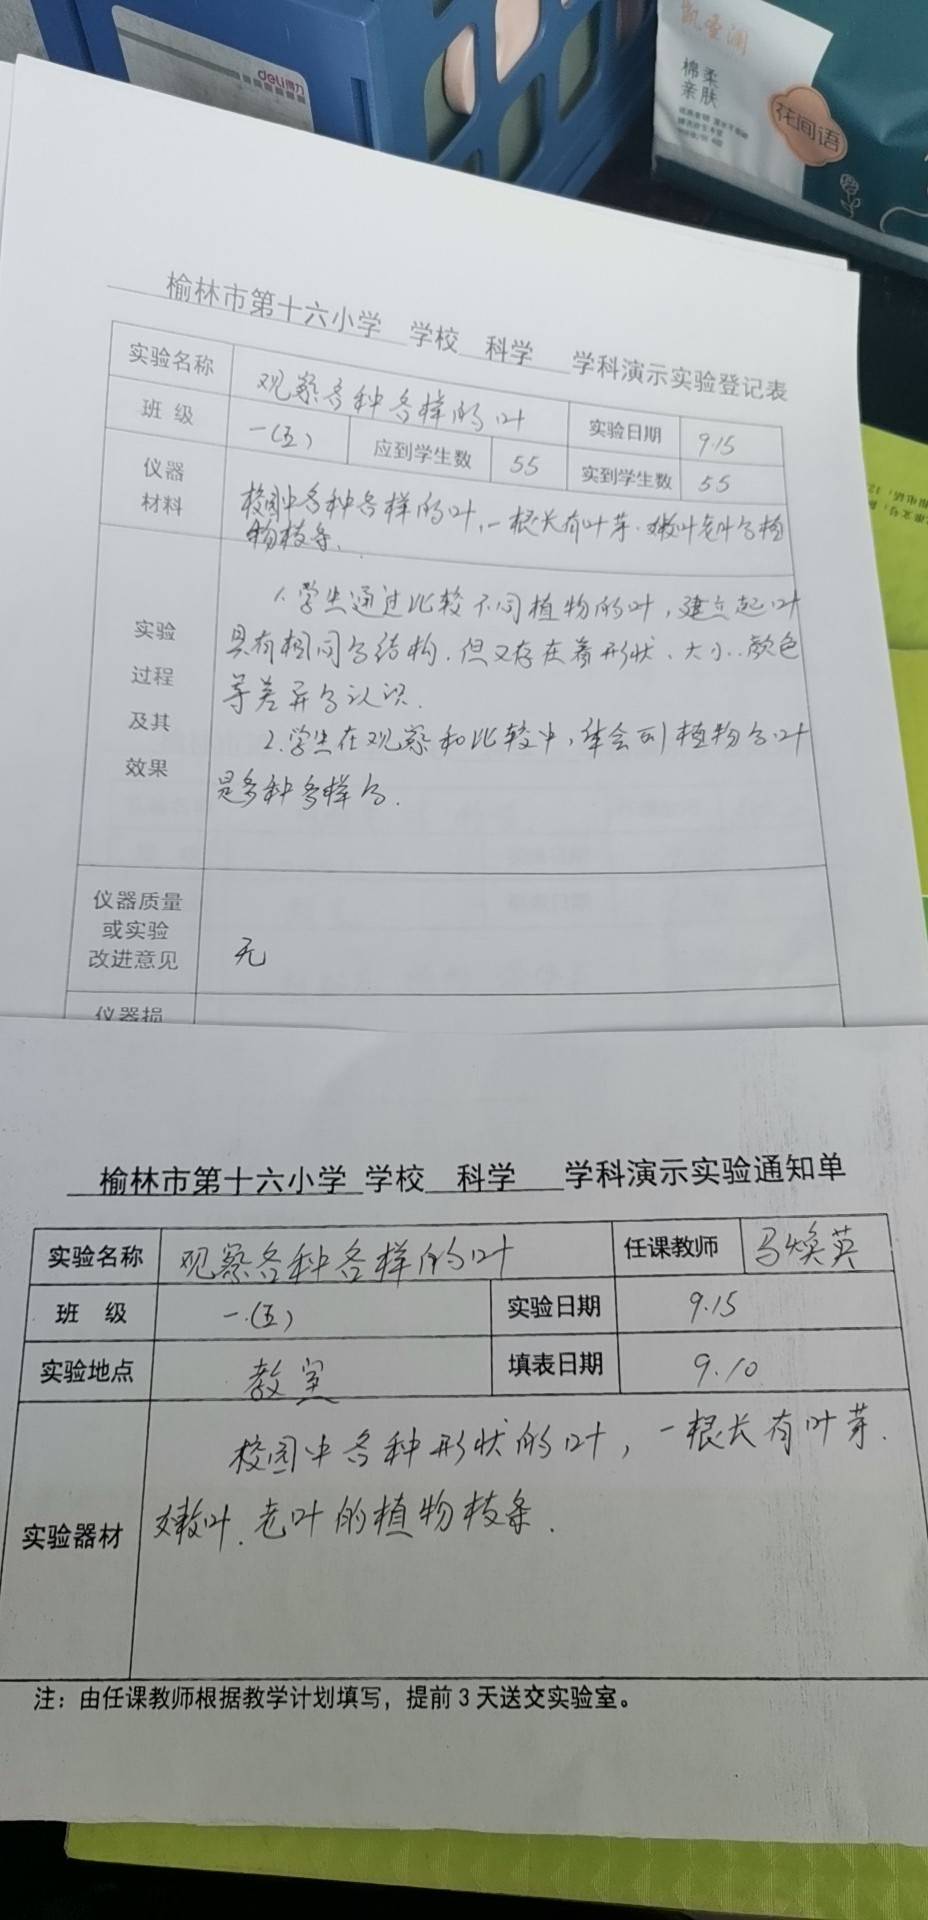 deli得力
凯童润
棉柔
亲肤
花间语
榆林市第十六小学 学校 科学 学科演示实验登记表
实验名称 观察各种各样的叶 实验日期 9.15
班 级 一(五) 应到学生数 55 实到学生数 55
仪器
材料
校园中各种各样的叶,一根长有叶芽.嫩叶老叶的植
物枝条.
实验
过程
及其
效果
1.学生通过比较不同植物的叶,建立起叶
具有相同的结构.但又存在着形状、大小.颜色
等差异的认识.
2.学生在观察和比较中,体会到植物的叶
是多种多样的.
仪器质量
或实验
改进意见
无
仪器损
榆林市第十六小学 学校 科学 学科演示实验通知单
实验名称 观察各种各样的叶 任课教师 马焕英
班 级 一.(五) 实验日期 9.15
实验地点 教室 填表日期 9.10
实验器材
校园中各种形状的叶,一根长有叶芽.
嫩叶.老叶的植物枝条.
注：由任课教师根据教学计划填写，提前 3 天送交实验室。